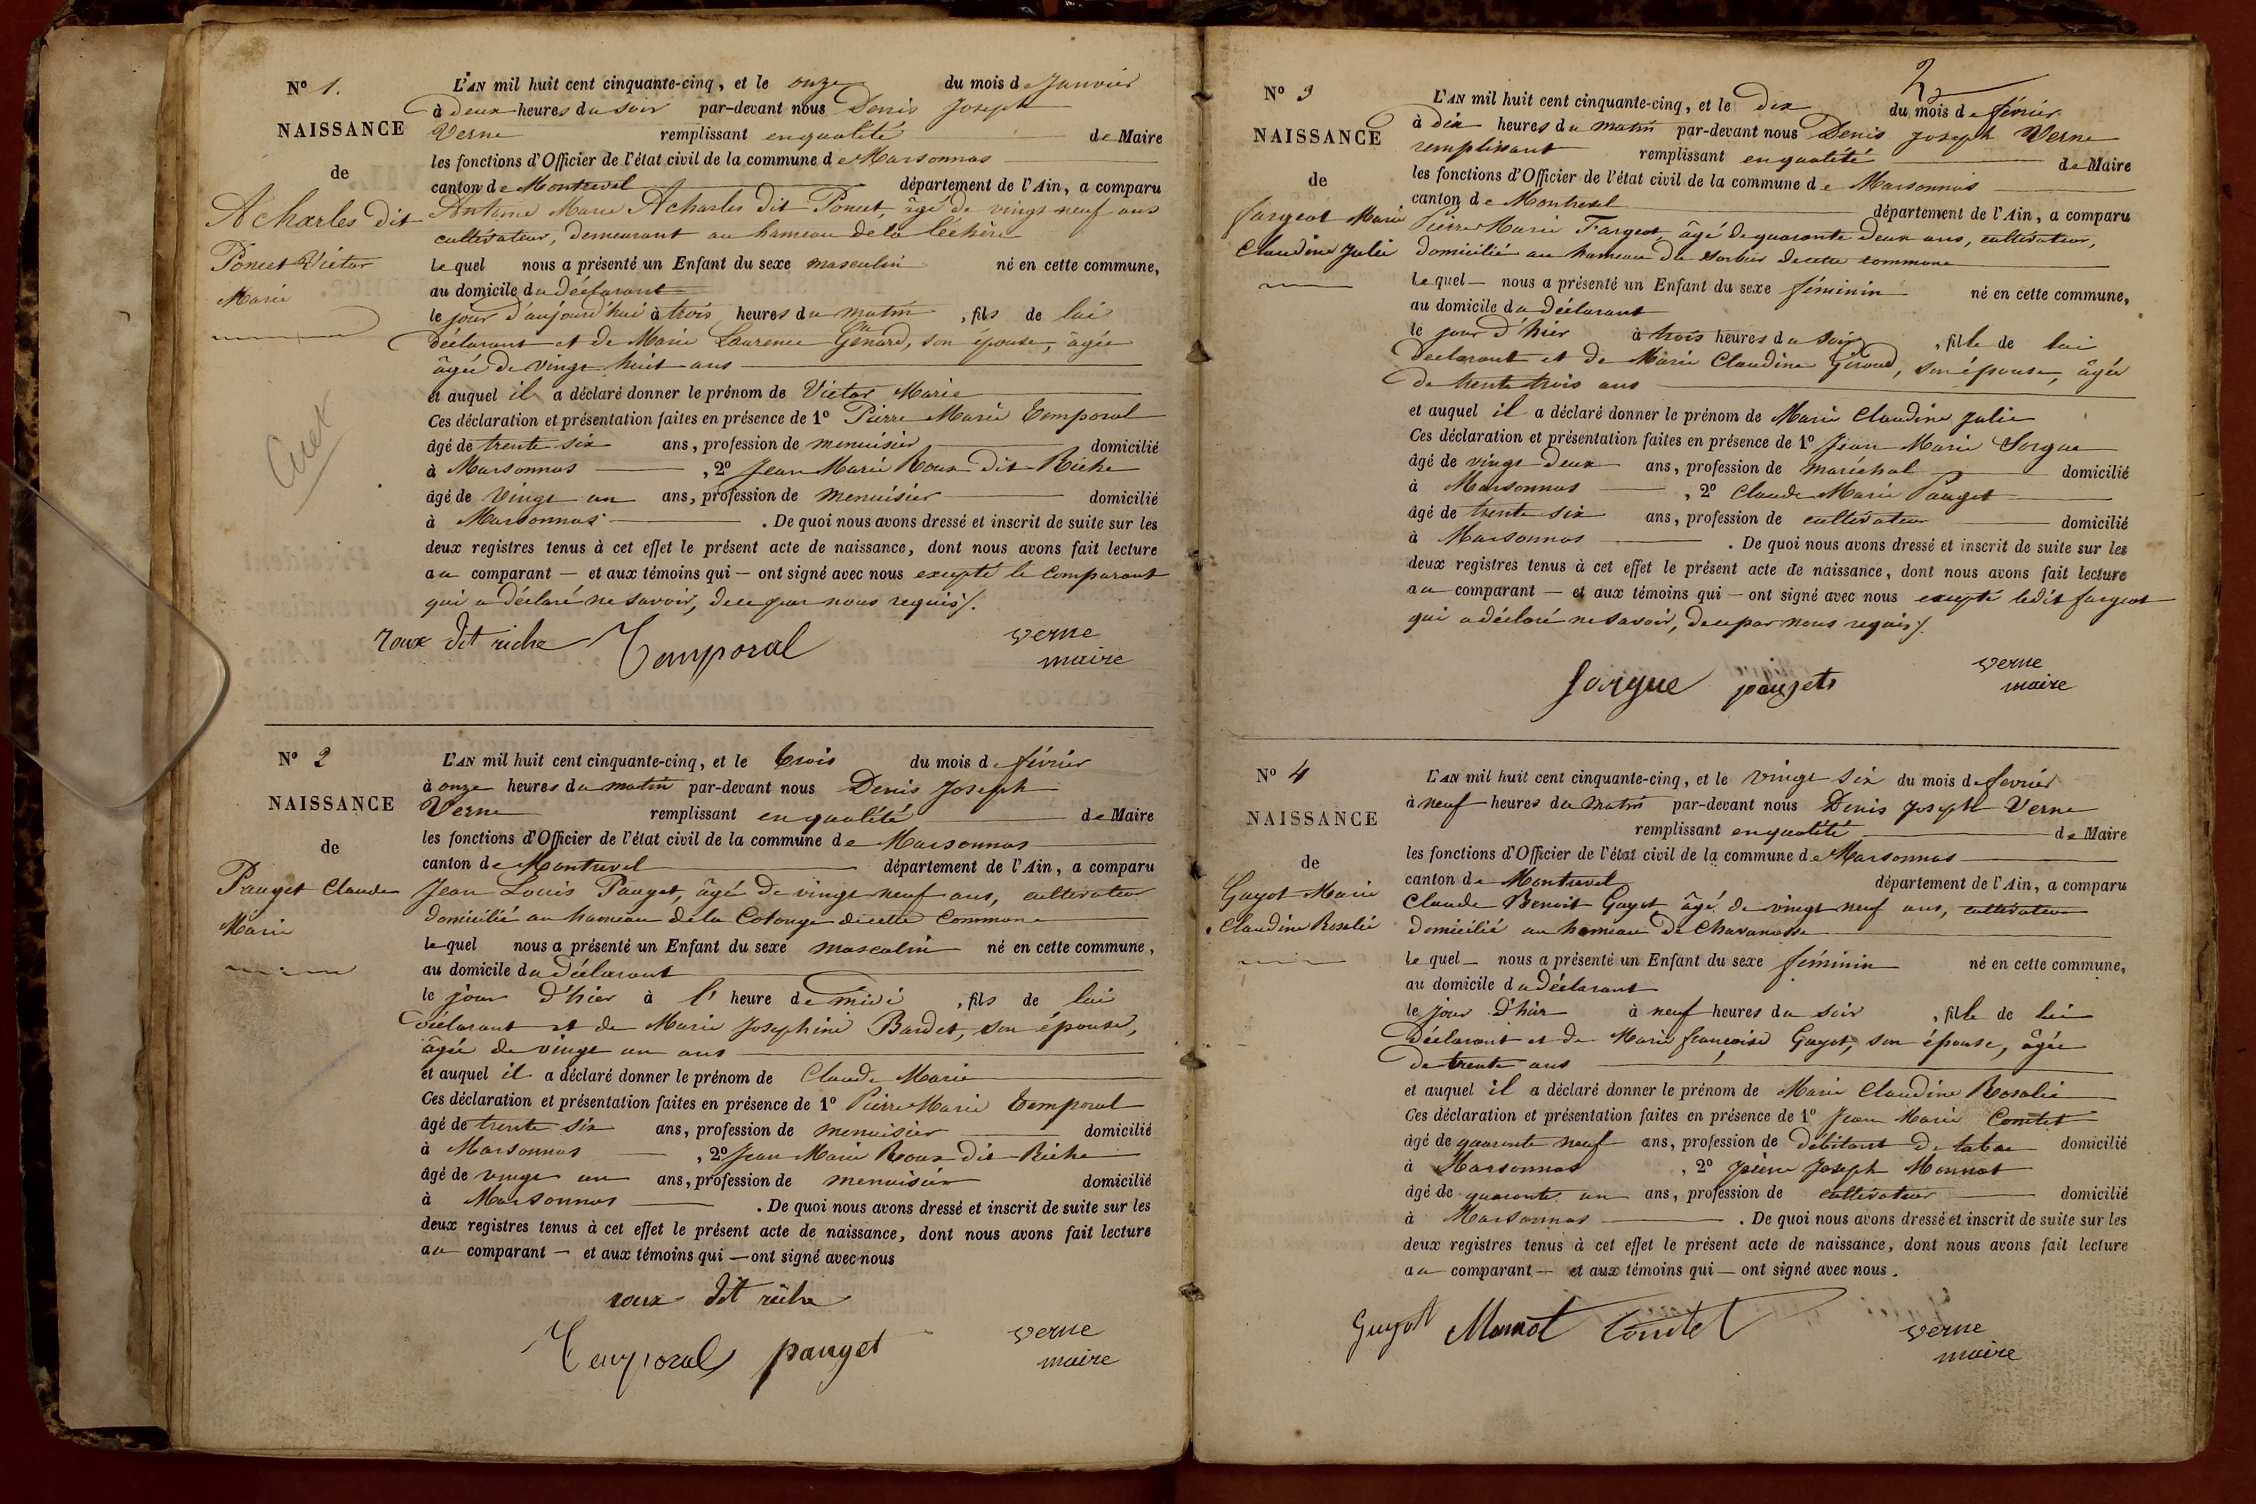 Nº 1.
NAISSANCE
de
Acharles dit
Poncet Victor
Marie
Cuet
L'AN mil huit cent cinquante-cinq, et le onze du mois de Janvier
à deux heures du soir par-devant nous Denis Joseph
Verne remplissant en qualité de Maire
les fonctions d'Officier de l'état civil de la commune de Marsonnas
canton de Montrevel département de l'Ain, a comparu
Antoine Marie Acharles dit Poncet, âgé de vingt neuf ans
cultivateur, demeurant au hameau de la Léchère
lequel nous a présenté un Enfant du sexe masculin né en cette commune,
au domicile du déclarant
le jour d'aujourd'hui à trois heures du matin, fils de lui
déclarant et de Marie Laurence Genard, son épouse, âgée
âgée de vingt huit ans
et auquel il a déclaré donner le prénom de Victor Marie
Ces déclaration et présentation faites en présence de 1º Pierre Marie Temporal
âgé de trente six ans, profession de menuisier domicilié
à Marsonnas, 2º Jean Marie Roux dit Riche
âgé de vingt un ans, profession de menuisier domicilié
à Marsonnas. De quoi nous avons dressé et inscrit de suite sur les
deux registres tenus à cet effet le présent acte de naissance, dont nous avons fait lecture
au comparant — et aux témoins qui — ont signé avec nous excepté le comparant
qui a déclaré ne savoir, de ce par nous requis/.
roux dit riche Temporal verne
maire
Nº 2
NAISSANCE
de
Pauget Claude
Marie
L'AN mil huit cent cinquante-cinq, et le trois du mois de février
à onze heures du matin par-devant nous Denis Joseph
Verne remplissant en qualité de Maire
les fonctions d'Officier de l'état civil de la commune de Marsonnas
canton de Montrevel département de l'Ain, a comparu
Jean Louis Pauget, âgé de vingt neuf ans, cultivateur
domicilié au hameau de la Colonge de cette Commune
lequel nous a présenté un Enfant du sexe masculin né en cette commune,
au domicile du déclarant
le jour d'hier à l' heure de midi, fils de lui
déclarant et de Marie Josephine Bardet, son épouse,
âgée de vingt un ans
et auquel il a déclaré donner le prénom de Claude Marie
Ces déclaration et présentation faites en présence de 1º Pierre Marie Temporal
âgé de trente six ans, profession de menuisier domicilié
à Marsonnas, 2º Jean Marie Roux dit Riche
âgé de vingt un ans, profession de menuisier domicilié
à Marsonnas. De quoi nous avons dressé et inscrit de suite sur les
deux registres tenus à cet effet le présent acte de naissance, dont nous avons fait lecture
au comparant — et aux témoins qui — ont signé avec nous
roux dit riche
Temporal pauget verne
maire
2
Nº 3
NAISSANCE
de
Fargeot Marie
Claudine Julie
L'AN mil huit cent cinquante-cinq, et le dix du mois de février
à dix heures du matin par-devant nous Denis Joseph Verne
remplissant remplissant en qualité de Maire
les fonctions d'Officier de l'état civil de la commune de Marsonnas
canton de Montrevel département de l'Ain, a comparu
Pierre Marie Fargeot âgé de quarante deux ans, cultivateur,
domicilié au hameau du de cette commune
lequel — nous a présenté un Enfant du sexe féminin né en cette commune,
au domicile du déclarant
le jour d'hier à trois heures du soir, fille de lui
déclarant et de Marie Claudine Giroud, son épouse, âgée
de trente trois ans
et auquel il a déclaré donner le prénom de Marie Claudine Julie
Ces déclaration et présentation faites en présence de 1º Jean Marie Sorgue
âgé de vingt deux ans, profession de maréchal domicilié
à Marsonnas, 2º Claude Marie Pauget
âgé de trente six ans, profession de cultivateur domicilié
à Marsonnas. De quoi nous avons dressé et inscrit de suite sur les
deux registres tenus à cet effet le présent acte de naissance, dont nous avons fait lecture
au comparant — et aux témoins qui — ont signé avec nous excepté ledit fargeot
qui a déclaré ne savoir, de ce par nous requis/.
verne
maire
Nº 4
NAISSANCE
de
Guyot Marie
Claudine Rosalie
L'AN mil huit cent cinquante-cinq, et le vingt six du mois de février
à neuf heures du matin par-devant nous Denis Joseph Verne
remplissant en qualité de Maire
les fonctions d'Officier de l'état civil de la commune de Marsonnas
canton de Montrevel département de l'Ain, a comparu
Claude Benoit Guyot âgé de vingt neuf ans, cultivateur
domicilié au hameau de Chavanosse
lequel — nous a présenté un Enfant du sexe féminin né en cette commune,
au domicile du déclarant
le jour d'hier à neuf heures du soir, fille de lui
déclarant et de Marie françoise Guyot, son épouse, âgée
de trente ans
et auquel il a déclaré donner le prénom de Marie Claudine Rosalie
Ces déclaration et présentation faites en présence de 1º Jean Marie Comtet
âgé de quarante neuf ans, profession de débitant de tabac domicilié
à Marsonnas, 2º pierre Joseph Monnot
âgé de quarante un ans, profession de cultivateur domicilié
à Marsonnas. De quoi nous avons dressé et inscrit de suite sur les
deux registres tenus à cet effet le présent acte de naissance, dont nous avons fait lecture
au comparant — et aux témoins qui — ont signé avec nous.
Guyot Monnot Comtet verne
maire